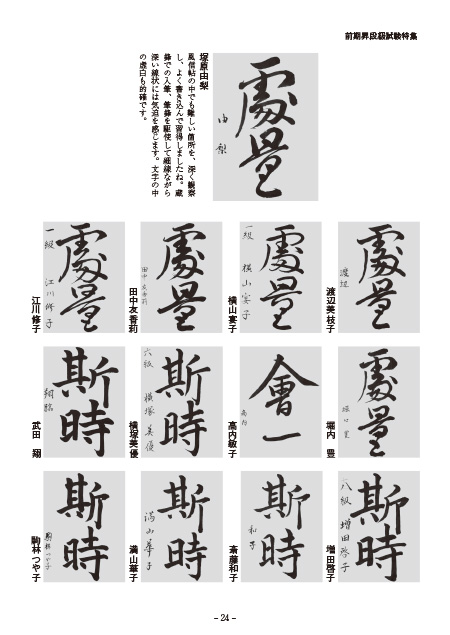 前期昇段級試験特集
處量
由梨
塚原由梨
風信帖の中でも難しい箇所を、深く観察
し、よく書き込んで習得しましたね。蔵
鋒での入筆、筆鋒を駆使して細線ながら
深い線状には気迫を感じます。文字の中
の虚白も的確です。
處量
渡辺
渡辺美枝子
處量
一級 横山宴子
横山宴子
處量
田中友香莉
田中友香莉
處量
一級 江川修子
江川修子
處量
堀内 豊
會一
高内
高内敏子
斯時
六級 横塚美優
横塚美優
斯時
武田 翔
斯時
八級 増田啓子
増田啓子
斯時
和子
斎藤和子
斯時
満山華子
満山華子
斯時
駒林つや子
駒林つや子
– 24 –